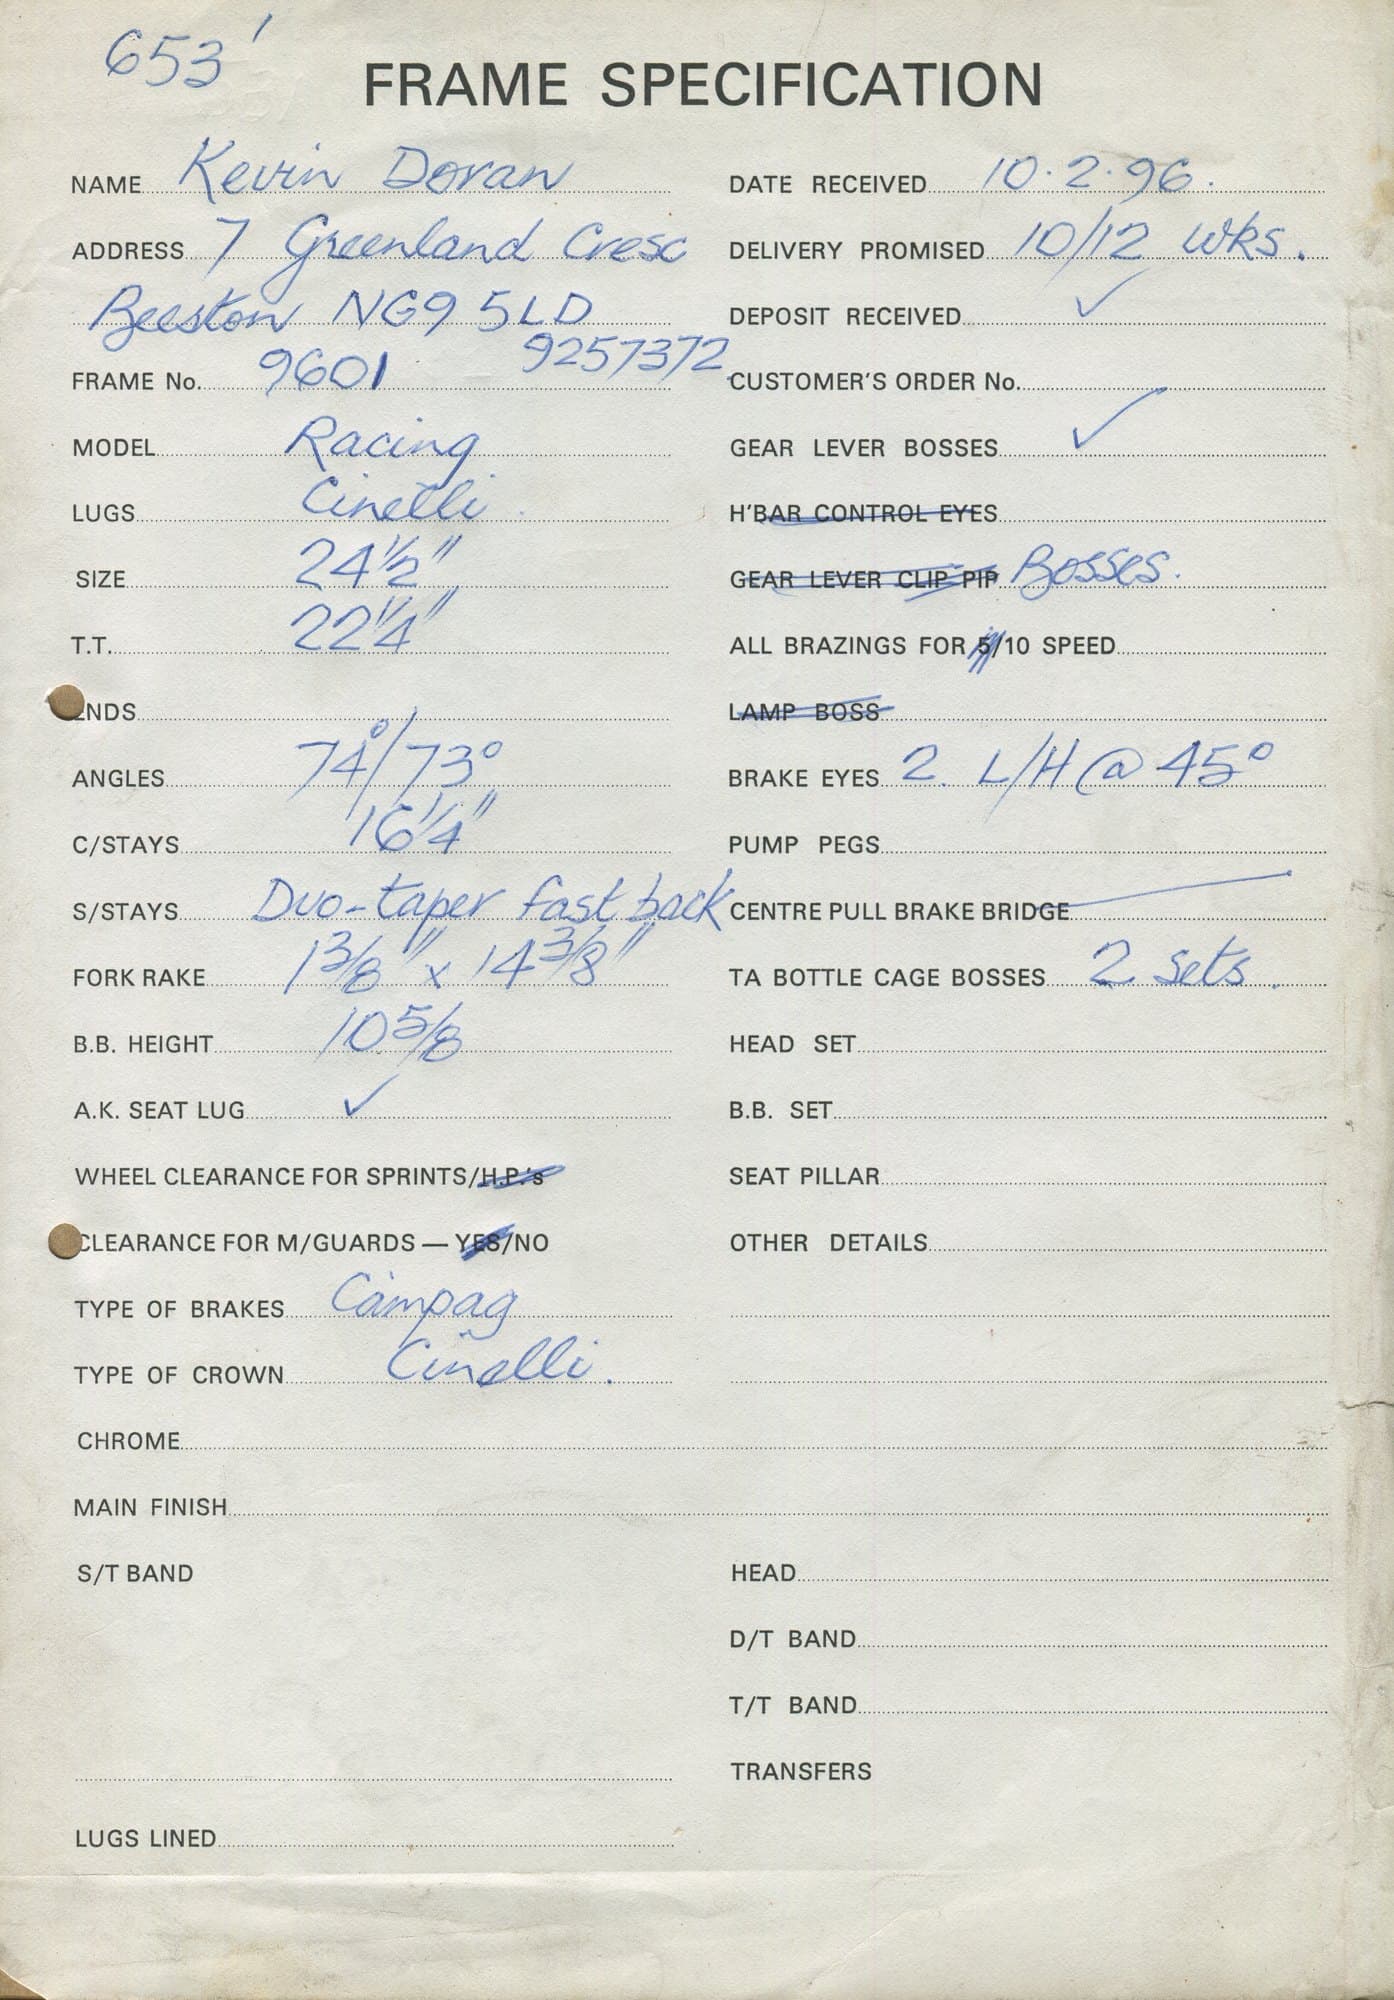 653
FRAME SPECIFICATION
NAME Kevin Doran
ADDRESS 7 Greenland Cresc
Beeston NG9 5LD
9257372
FRAME No. 9601
MODEL Racing
LUGS Cinelli.
SIZE 24 1/2"
T.T. 22 1/4"
ENDS
ANGLES 74°/73°
C/STAYS 16 1/4"
S/STAYS Duo-taper fast back
FORK RAKE 1 3/8" x 14 3/8"
B.B. HEIGHT 10 5/8
A.K. SEAT LUG ✓
WHEEL CLEARANCE FOR SPRINTS/H.P.'s
CLEARANCE FOR M/GUARDS — YES/NO
TYPE OF BRAKES Campag
TYPE OF CROWN Cinelli.
CHROME
MAIN FINISH
S/T BAND
LUGS LINED
DATE RECEIVED 10.2.96.
DELIVERY PROMISED 10/12 wks.
DEPOSIT RECEIVED ✓
CUSTOMER'S ORDER No.
GEAR LEVER BOSSES ✓
H'BAR CONTROL EYES
GEAR LEVER CLIP PIP Bosses.
ALL BRAZINGS FOR 5/10 SPEED
LAMP BOSS
BRAKE EYES 2. L/H @ 45°
PUMP PEGS
CENTRE PULL BRAKE BRIDGE
TA BOTTLE CAGE BOSSES 2 sets.
HEAD SET
B.B. SET
SEAT PILLAR
OTHER DETAILS
HEAD
D/T BAND
T/T BAND
TRANSFERS